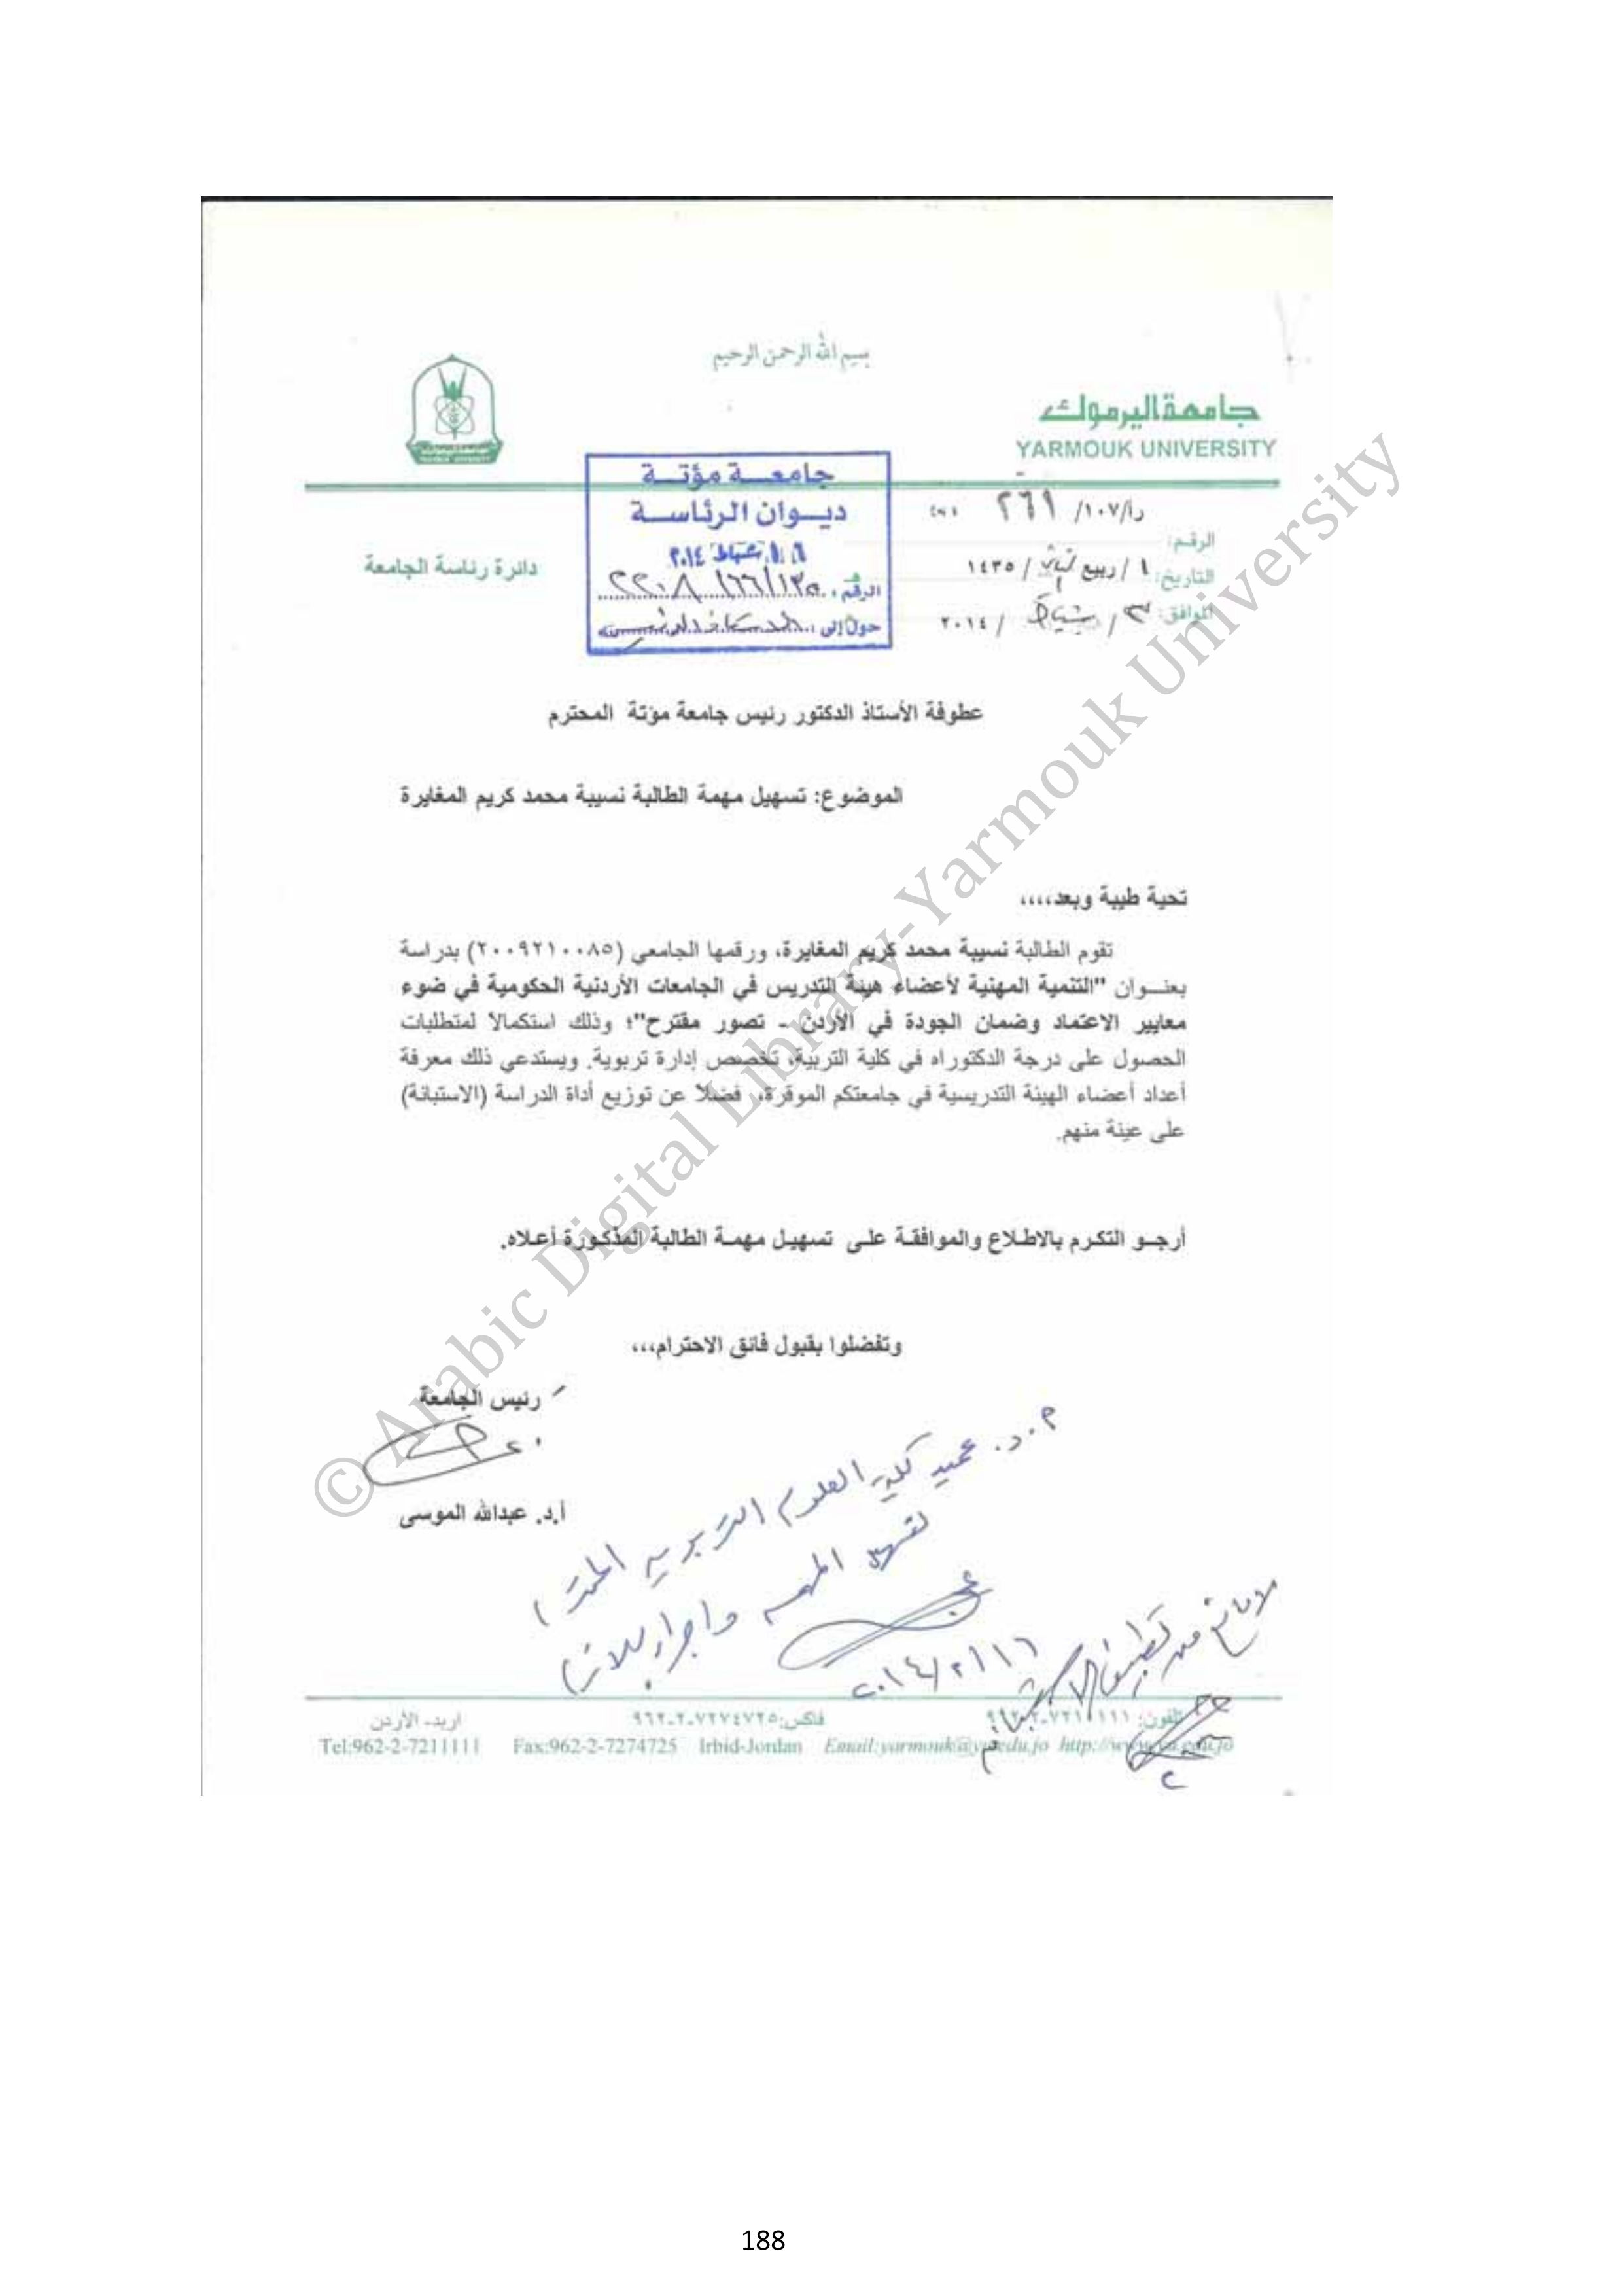 بسم الله الرحمن الرحيم
جامعة اليرموك
YARMOUK UNIVERSITY
دائرة رئاسة الجامعة
جامعـــة مؤتــة
ديــوان الرئاســة
شباط ٢٠١٤
الرقم: ٢٢٠٨/١٦٦/١٣٥
حول إلى:
ر/أ/١٠٧/ ٢٦٩
الرقم:
التاريخ: ١ / ربيع / ١٤٣٥
الموافق: / شباط / ٢٠١٤
عطوفة الأستاذ الدكتور رئيس جامعة مؤتة المحترم
الموضوع: تسهيل مهمة الطالبة نسيبة محمد كريم المغايرة
تحية طيبة وبعد،،،،
تقوم الطالبة نسيبة محمد كريم المغايرة، ورقمها الجامعي (٢٠٠٩٢١٠٠٨٥) بدراسة
بعنــوان "التنمية المهنية لأعضاء هيئة التدريس في الجامعات الأردنية الحكومية في ضوء
معايير الاعتماد وضمان الجودة في الأردن - تصور مقترح"؛ وذلك استكمالا لمتطلبات
الحصول على درجة الدكتوراه في كلية التربية، تخصص إدارة تربوية. ويستدعي ذلك معرفة
أعداد أعضاء الهيئة التدريسية في جامعتكم الموقرة، فضلا عن توزيع أداة الدراسة (الاستبانة)
على عينة منهم.
أرجــو التكرم بالاطلاع والموافقة علـى تسهيل مهمـة الطالبة المذكـورة أعـلاه.
وتفضلوا بقبول فائق الاحترام،،،
رئيس الجامعة
أ.د. عبدالله الموسى
أ.د. عميد كلية العلوم التربوية المحترم
لتسهيل المهمة واجراء اللازم
٢٠١٤/٢/١٦
لا مانع من تطبيق
تلفون: ٩٦٢-٢-٧٢١١١١١ فاكس:٩٦٢-٢-٧٢٧٤٧٢٥ اربد-الأردن
Tel:962-2-7211111 Fax:962-2-7274725 Irbid-Jordan Email:yarmouk@yu.edu.jo http://www.yu.edu.jo
© Arabic Digital Library-Yarmouk University
188